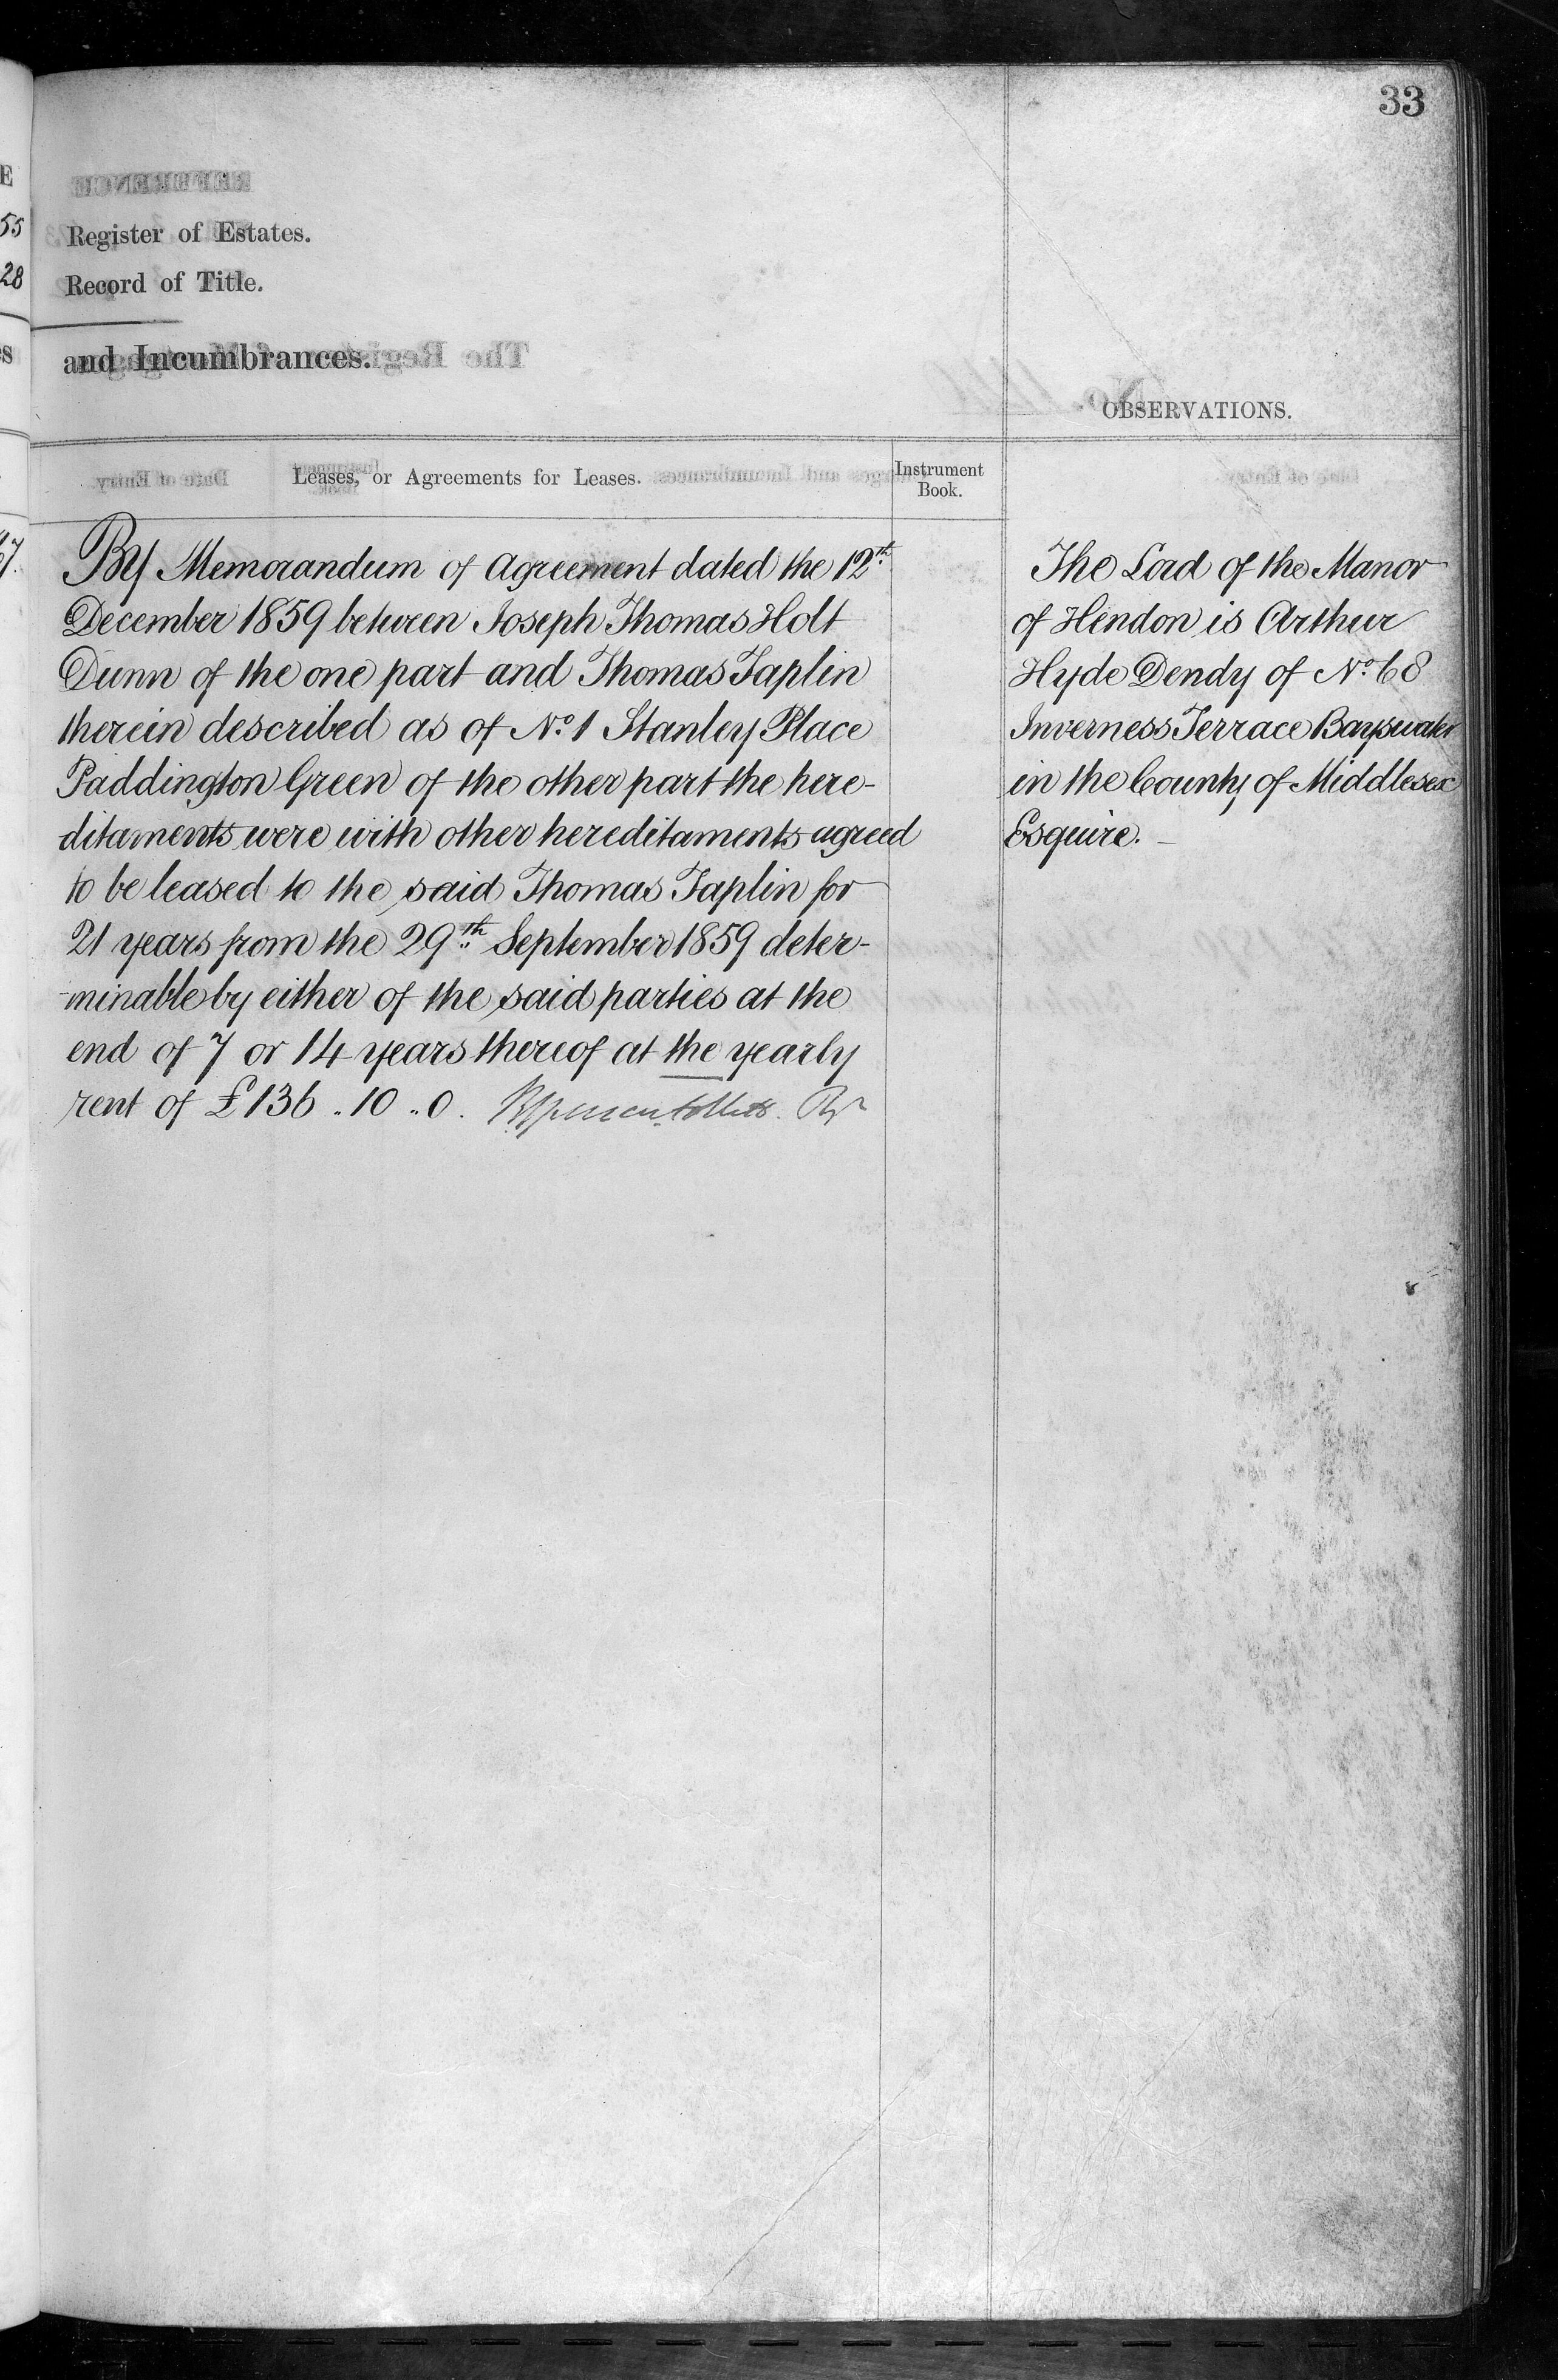 33
Register of Estates.
Record of Title.
and Incumbrances.
OBSERVATIONS.
Leases, or Agreements for Leases.
Instrument
Book.
By Memorandum of Agreement dated the 12th
December 1859 between Joseph Thomas Holt
Dunn of the one part and Thomas Taplin
therein described as of No. 1 Stanley Place
Paddington Green of the other part the here-
ditaments were with other hereditaments agreed
to be leased to the said Thomas Taplin for
21 years from the 29th September 1859 deter-
-minable by either of the said parties at the
end of 7 or 14 years thereof at the yearly
rent of £136 .. 10 .. 0.
The Lord of the Manor
of Hendon is Arthur
Hyde Dendy of No. 68
Inverness Terrace Bayswater
in the County of Middlesex
Esquire. -